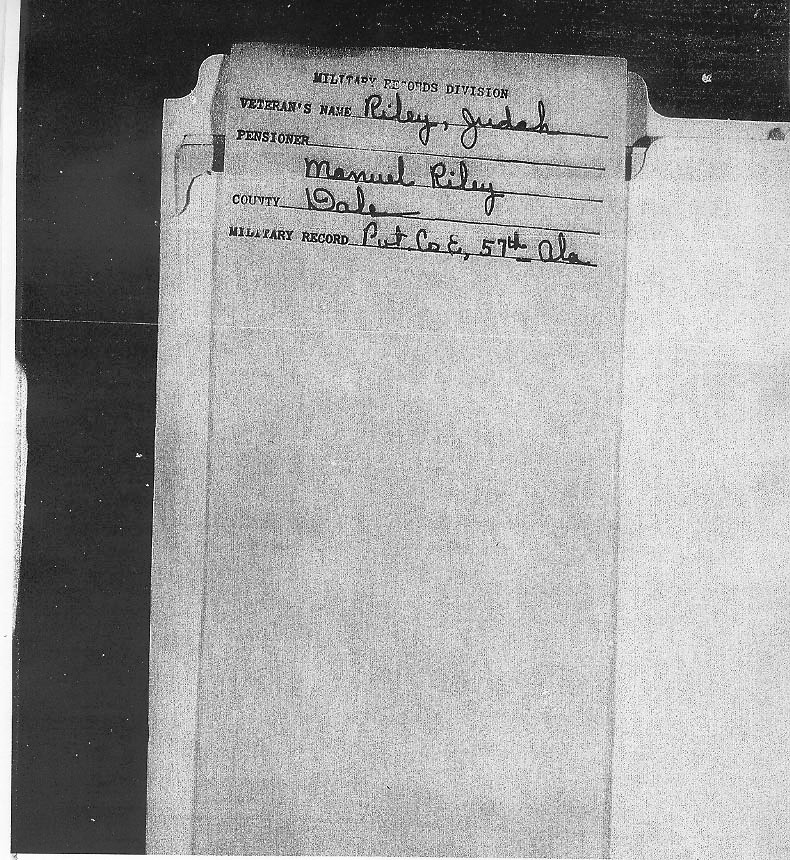 MILITARY RECORDS DIVISION
VETERAN'S NAME Riley, Judah
PENSIONER
Manuel Riley
COUNTY Dale
MILITARY RECORD Pvt. Co E, 57th Ala.